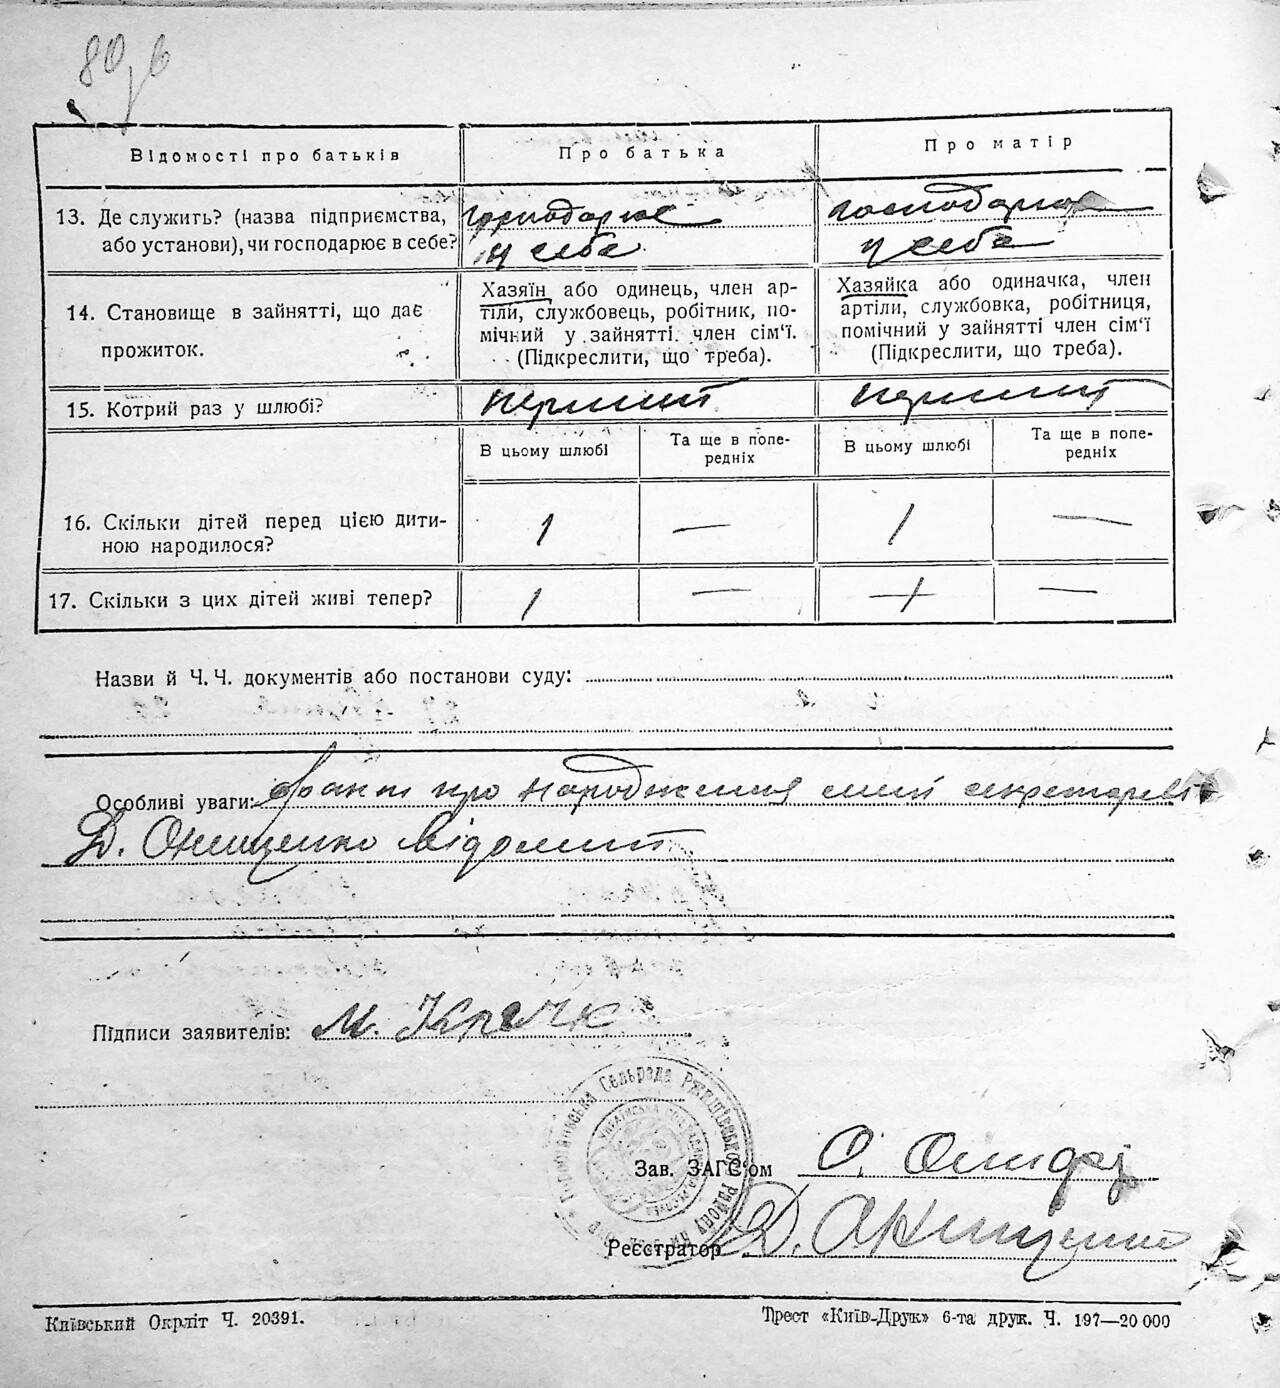 80
Відомості про батьків
Про батька
Про матір
13. Де служить? (назва підприємства, або установи), чи господарює в себе?
господарює
у себе
господарює
у себе
14. Становище в зайнятті, що дає
прожиток.
Хазяїн або одинець, член ар-
тіли, службовець, робітник, по-
мічний у зайнятті член сім'ї.
(Підкреслити, що треба).
Хазяйка або одиначка, член
артіли, службовка, робітниця,
помічний у зайнятті член сім'ї
(Підкреслити, що треба).
15. Котрий раз у шлюбі?
перший
перший
В цьому шлюбі
Та ще в попе-
редніх
В цьому шлюбі
Та ще в попе-
редніх
16. Скільки дітей перед цією дити-
ною народилося?
1 — 1 —
17. Скільки з цих дітей живі тепер?
1 — 1 —
Назви й Ч. Ч. документів або постанови суду:
Особливі уваги: факт про народження мені секретареві
Д. Онищенко відомий
Підписи заявителів: М. Крячк
Сельрада Ржищівського Району
Зав. ЗАГС'ом О.
Реєстратор Д. Онищенко
Київський Окрліт Ч. 20391.
Трест «Київ-Друк» 6-та друк. Ч. 197—20 000